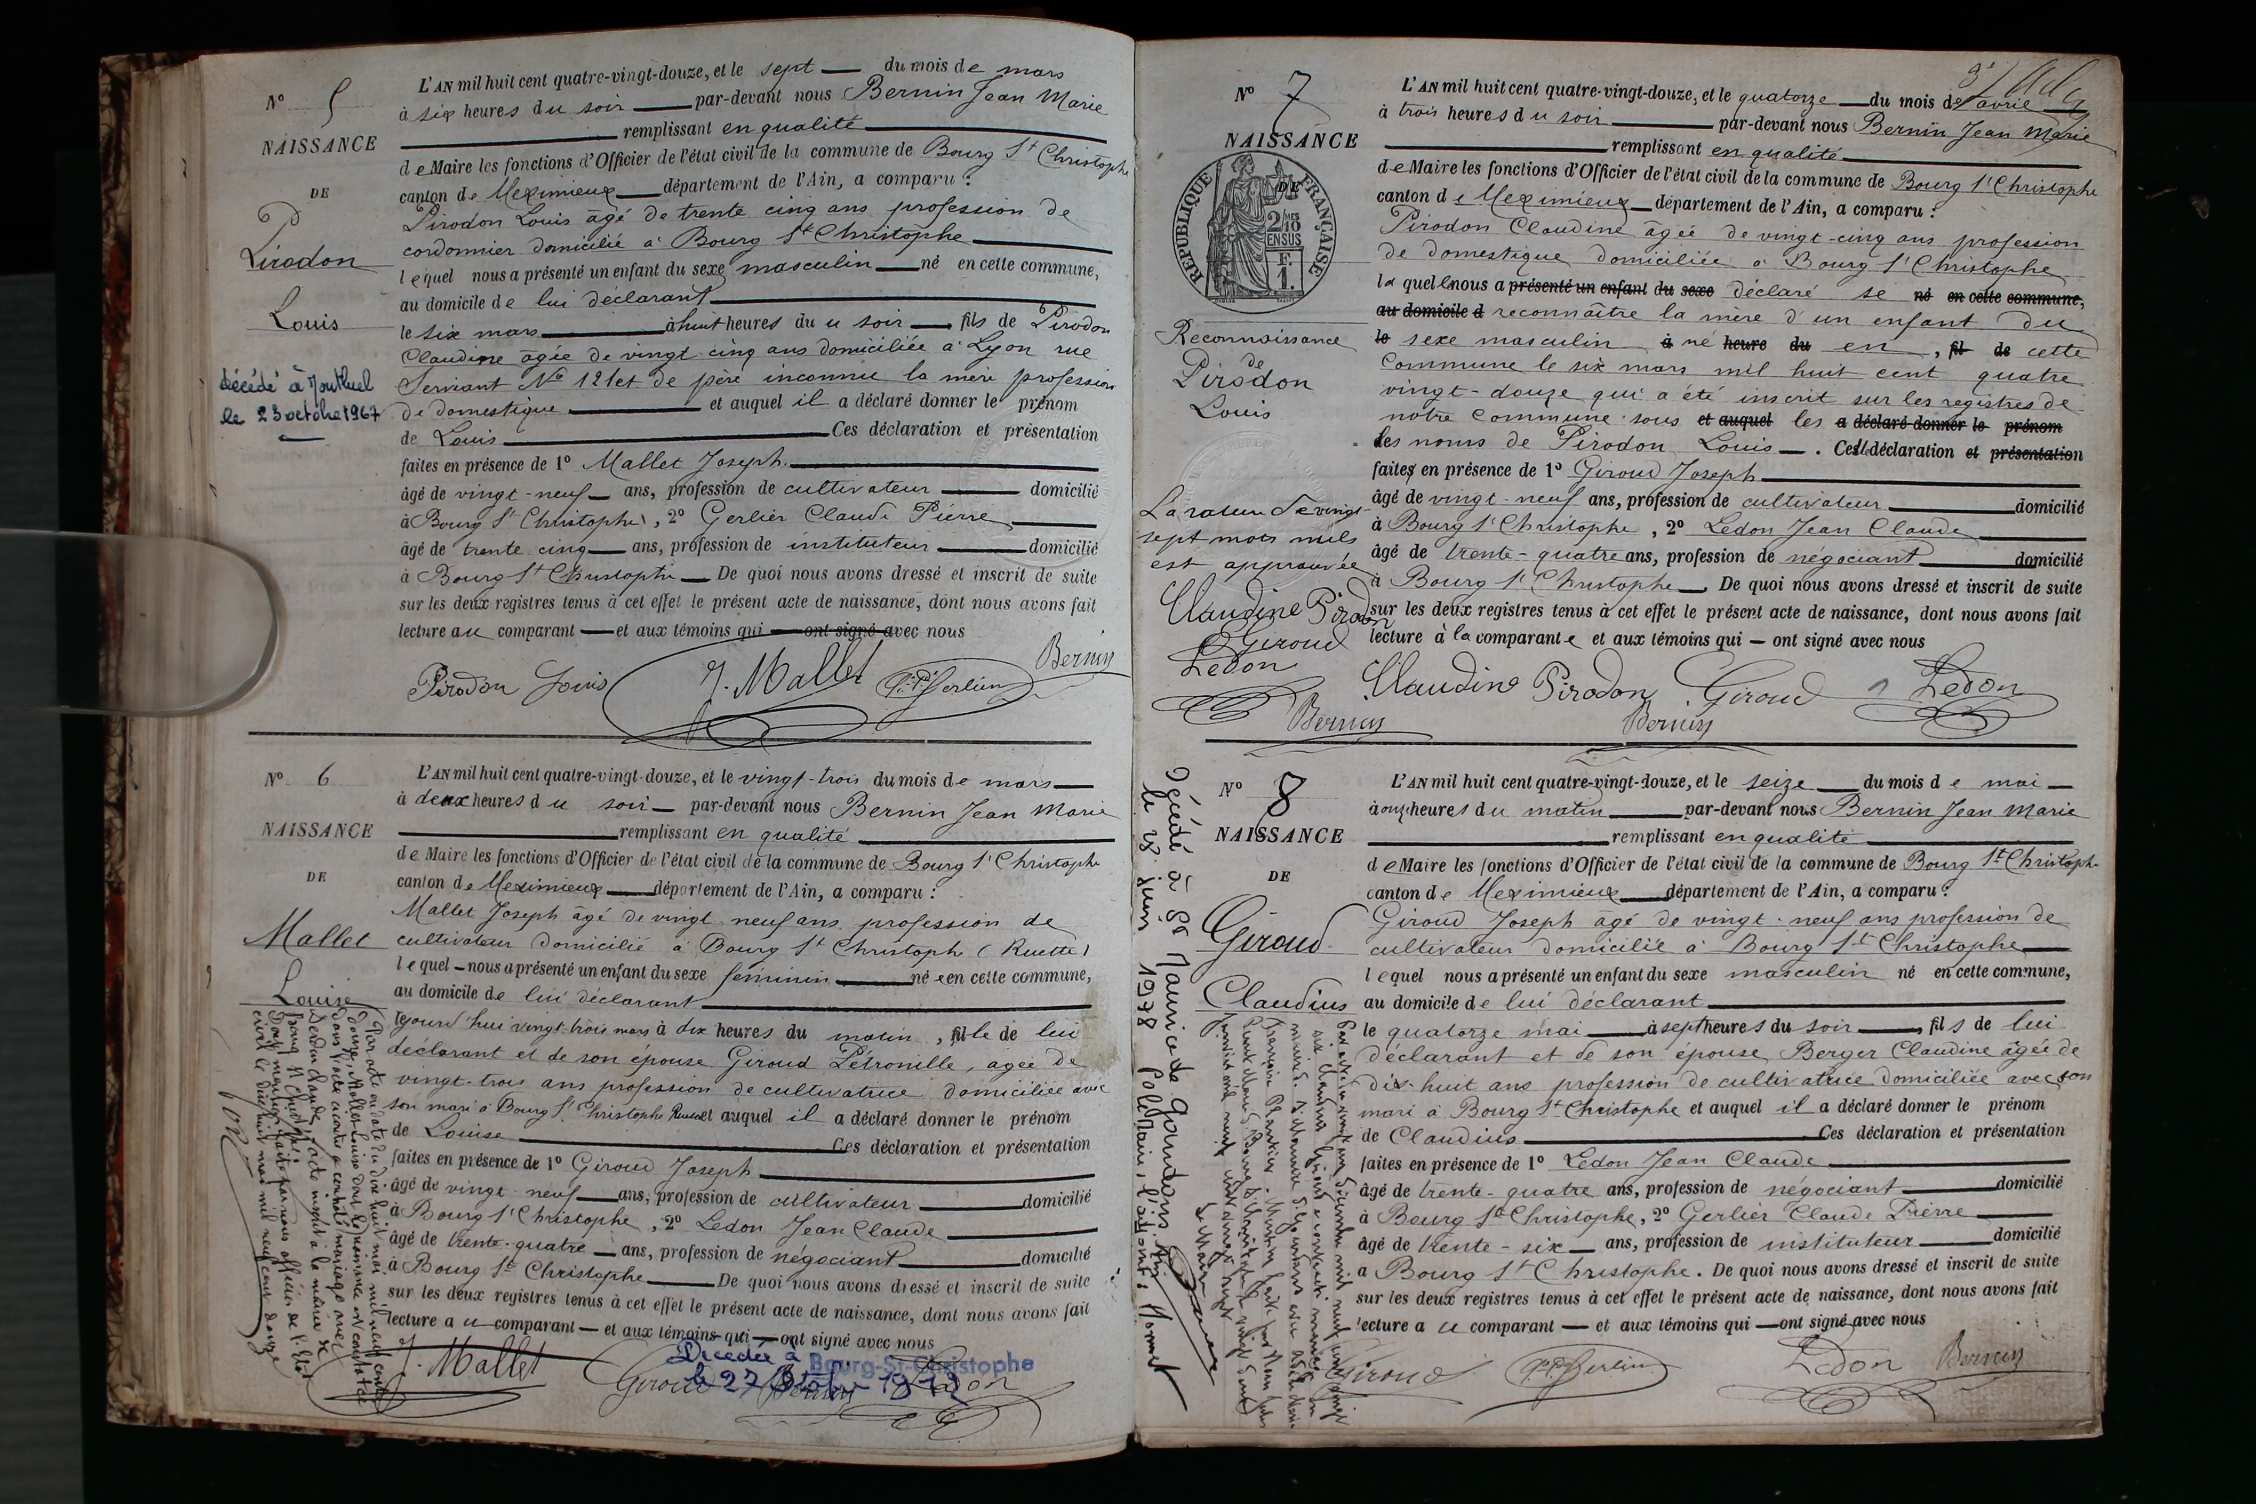 N° 5
NAISSANCE
DE
Pirodon
Louis
décédé à Montluel
le 23 octobre 1967
L'AN mil huit cent quatre-vingt-douze, et le sept du mois de mars
à six heures du soir par-devant nous Bernin Jean Marie
remplissant en qualité
de Maire les fonctions d'Officier de l'état civil de la commune de Bourg St Christophe
canton de Meximieux département de l'Ain, a comparu :
Pirodon Louis âgé de trente cinq ans profession de
cordonnier domicilié à Bourg St Christophe
lequel nous a présenté un enfant du sexe masculin né en cette commune,
au domicile de lui déclarant
le six mars à huit heures du soir fils de Pirodon
Claudine âgée de vingt-cinq ans domiciliée à Lyon rue
Servient N° 121 et de père inconnu la mère profession
de domestique et auquel il a déclaré donner le prénom
de Louis Ces déclaration et présentation
faites en présence de 1° Mallet Joseph
âgé de vingt-neuf ans, profession de cultivateur domicilié
à Bourg St Christophe, 2° Gerlier Claude Pierre
âgé de trente cinq ans, profession de instituteur domicilié
à Bourg St Christophe De quoi nous avons dressé et inscrit de suite
sur les deux registres tenus à cet effet le présent acte de naissance, dont nous avons fait
lecture au comparant et aux témoins qui ont signé avec nous
Pirodon Louis J. Mallet C. P. Gerlier Bernin
N° 6
NAISSANCE
DE
Mallet
Louise
L'AN mil huit cent quatre-vingt-douze, et le vingt-trois du mois de mars
à deux heures du soir par-devant nous Bernin Jean Marie
remplissant en qualité
de Maire les fonctions d'Officier de l'état civil de la commune de Bourg St Christophe
canton de Meximieux département de l'Ain, a comparu :
Mallet Joseph âgé de vingt neuf ans profession de
cultivateur domicilié à Bourg St Christophe (Ruette)
lequel nous a présenté un enfant du sexe féminin née en cette commune,
au domicile de lui déclarant
lejourd'hui vingt-trois mars à dix heures du matin, fille de lui
déclarant et de son épouse Giroud Pétronille, agée de
vingt-trois ans profession de cultivatrice domiciliée avec
son mari à Bourg St Christophe Ruette et auquel il a déclaré donner le prénom
de Louise Ces déclaration et présentation
faites en présence de 1° Giroud Joseph
âgé de vingt-neuf ans, profession de cultivateur domicilié
à Bourg St Christophe, 2° Ledon Jean Claude
âgé de trente-quatre ans, profession de négociant domicilié
à Bourg St Christophe De quoi nous avons dressé et inscrit de suite
sur les deux registres tenus à cet effet le présent acte de naissance, dont nous avons fait
lecture au comparant et aux témoins qui ont signé avec nous
J. Mallet Giroud Bernin Ledon
Décédée à Bourg-St-Christophe
le 27
N° 7
NAISSANCE
DE
RÉPUBLIQUE FRANÇAISE
2/10 EN SUS
F. 1.
Reconnaissance
de
Pirodon
Louis
La rature de vingt-
sept mots nuls
est approuvée
Claudine Pirodon
Giroud
Ledon
Bernin
L'AN mil huit cent quatre-vingt-douze, et le quatorze du mois de avril
à trois heures du soir par-devant nous Bernin Jean Marie
remplissant en qualité
de Maire les fonctions d'Officier de l'état civil de la commune de Bourg St Christophe
canton de Meximieux département de l'Ain, a comparu :
Pirodon Claudine âgée de vingt-cinq ans profession
de domestique domiciliée à Bourg St Christophe
laquelle nous a présenté un enfant du sexe déclaré se né en cette commune,
au domicile d reconnaître la mère d'un enfant du
le sexe masculin à né heure du en, fil de cette
Commune le six mars mil huit cent quatre
vingt-douze qui a été inscrit sur les registres de
notre commune sous et auquel les a déclaré donner le prénom
des noms de Pirodon Louis. Cette déclaration et présentation
faites en présence de 1° Giroud Joseph
âgé de vingt-neuf ans, profession de cultivateur domicilié
à Bourg St Christophe, 2° Ledon Jean Claude
âgé de trente-quatre ans, profession de négociant domicilié
à Bourg St Christophe De quoi nous avons dressé et inscrit de suite
sur les deux registres tenus à cet effet le présent acte de naissance, dont nous avons fait
lecture à la comparante et aux témoins qui ont signé avec nous
Claudine Pirodon Giroud Ledon
Bernin
N° 8
NAISSANCE
DE
Giroud
Claudius
Décédé à St Maurice de Gourdans
le 23 juin 1978
L'AN mil huit cent quatre-vingt-douze, et le seize du mois de mai
à onze heures du matin par-devant nous Bernin Jean Marie
remplissant en qualité
de Maire les fonctions d'Officier de l'état civil de la commune de Bourg St Christophe
canton de Meximieux département de l'Ain, a comparu :
Giroud Joseph agé de vingt-neuf ans profession de
cultivateur domicilié à Bourg St Christophe
lequel nous a présenté un enfant du sexe masculin né en cette commune,
au domicile de lui déclarant
le quatorze mai à sept heures du soir, fils de lui
déclarant et de son épouse Berger Claudine âgée de
dix-huit ans profession de cultivatrice domiciliée avec son
mari à Bourg St Christophe et auquel il a déclaré donner le prénom
de Claudius Ces déclaration et présentation
faites en présence de 1° Ledon Jean Claude
âgé de trente-quatre ans, profession de négociant domicilié
à Bourg St Christophe, 2° Gerlier Claude Pierre
âgé de trente-six ans, profession de instituteur domicilié
a Bourg St Christophe. De quoi nous avons dressé et inscrit de suite
sur les deux registres tenus à cet effet le présent acte de naissance, dont nous avons fait
lecture au comparant et aux témoins qui ont signé avec nous
Giroud C. P. Gerlier Ledon Bernin